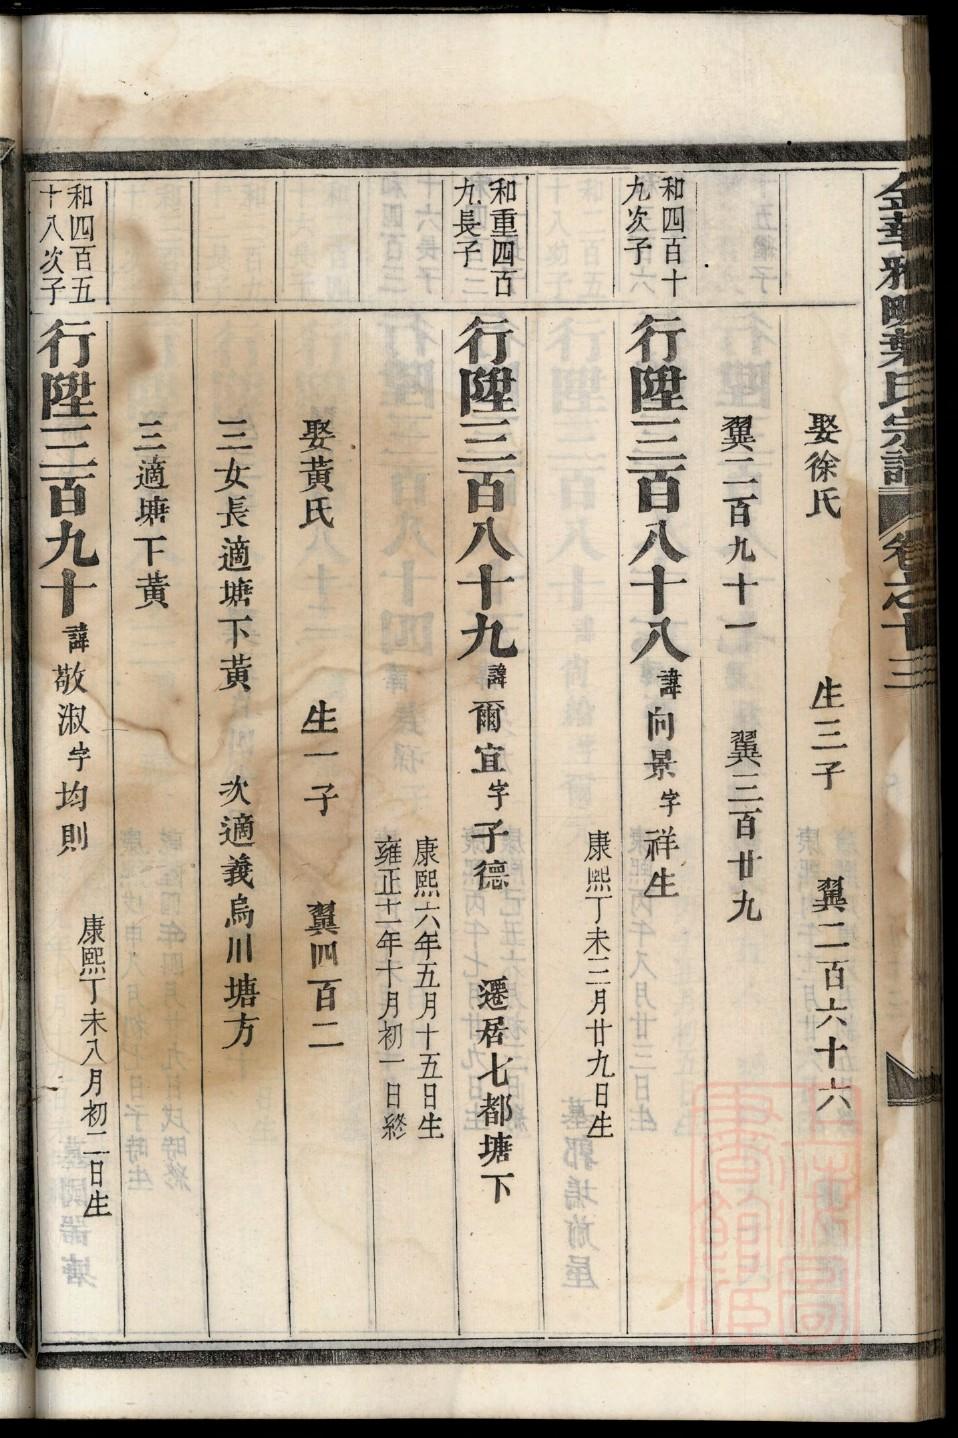 金華雅畈葉氏宗譜 卷之十三
娶徐氏 生三子 翼二百六十六
翼二百九十一 翼三百廿九
和四百十
九次子
行陞三百八十八 諱向景字祥生
康熙丁未三月廿九日生
和重四百
九長子
行陞三百八十九 諱爾宜字子德 遷居七都塘下
康熙六年五月十五日生
雍正十二年十月初一日終
娶黃氏 生一子 翼四百二
三女長適塘下黃 次適義烏川塘方
三適塘下黃
和四百五
十八次子
行陞三百九十 諱敬淑字均則
康熙丁未八月初二日生